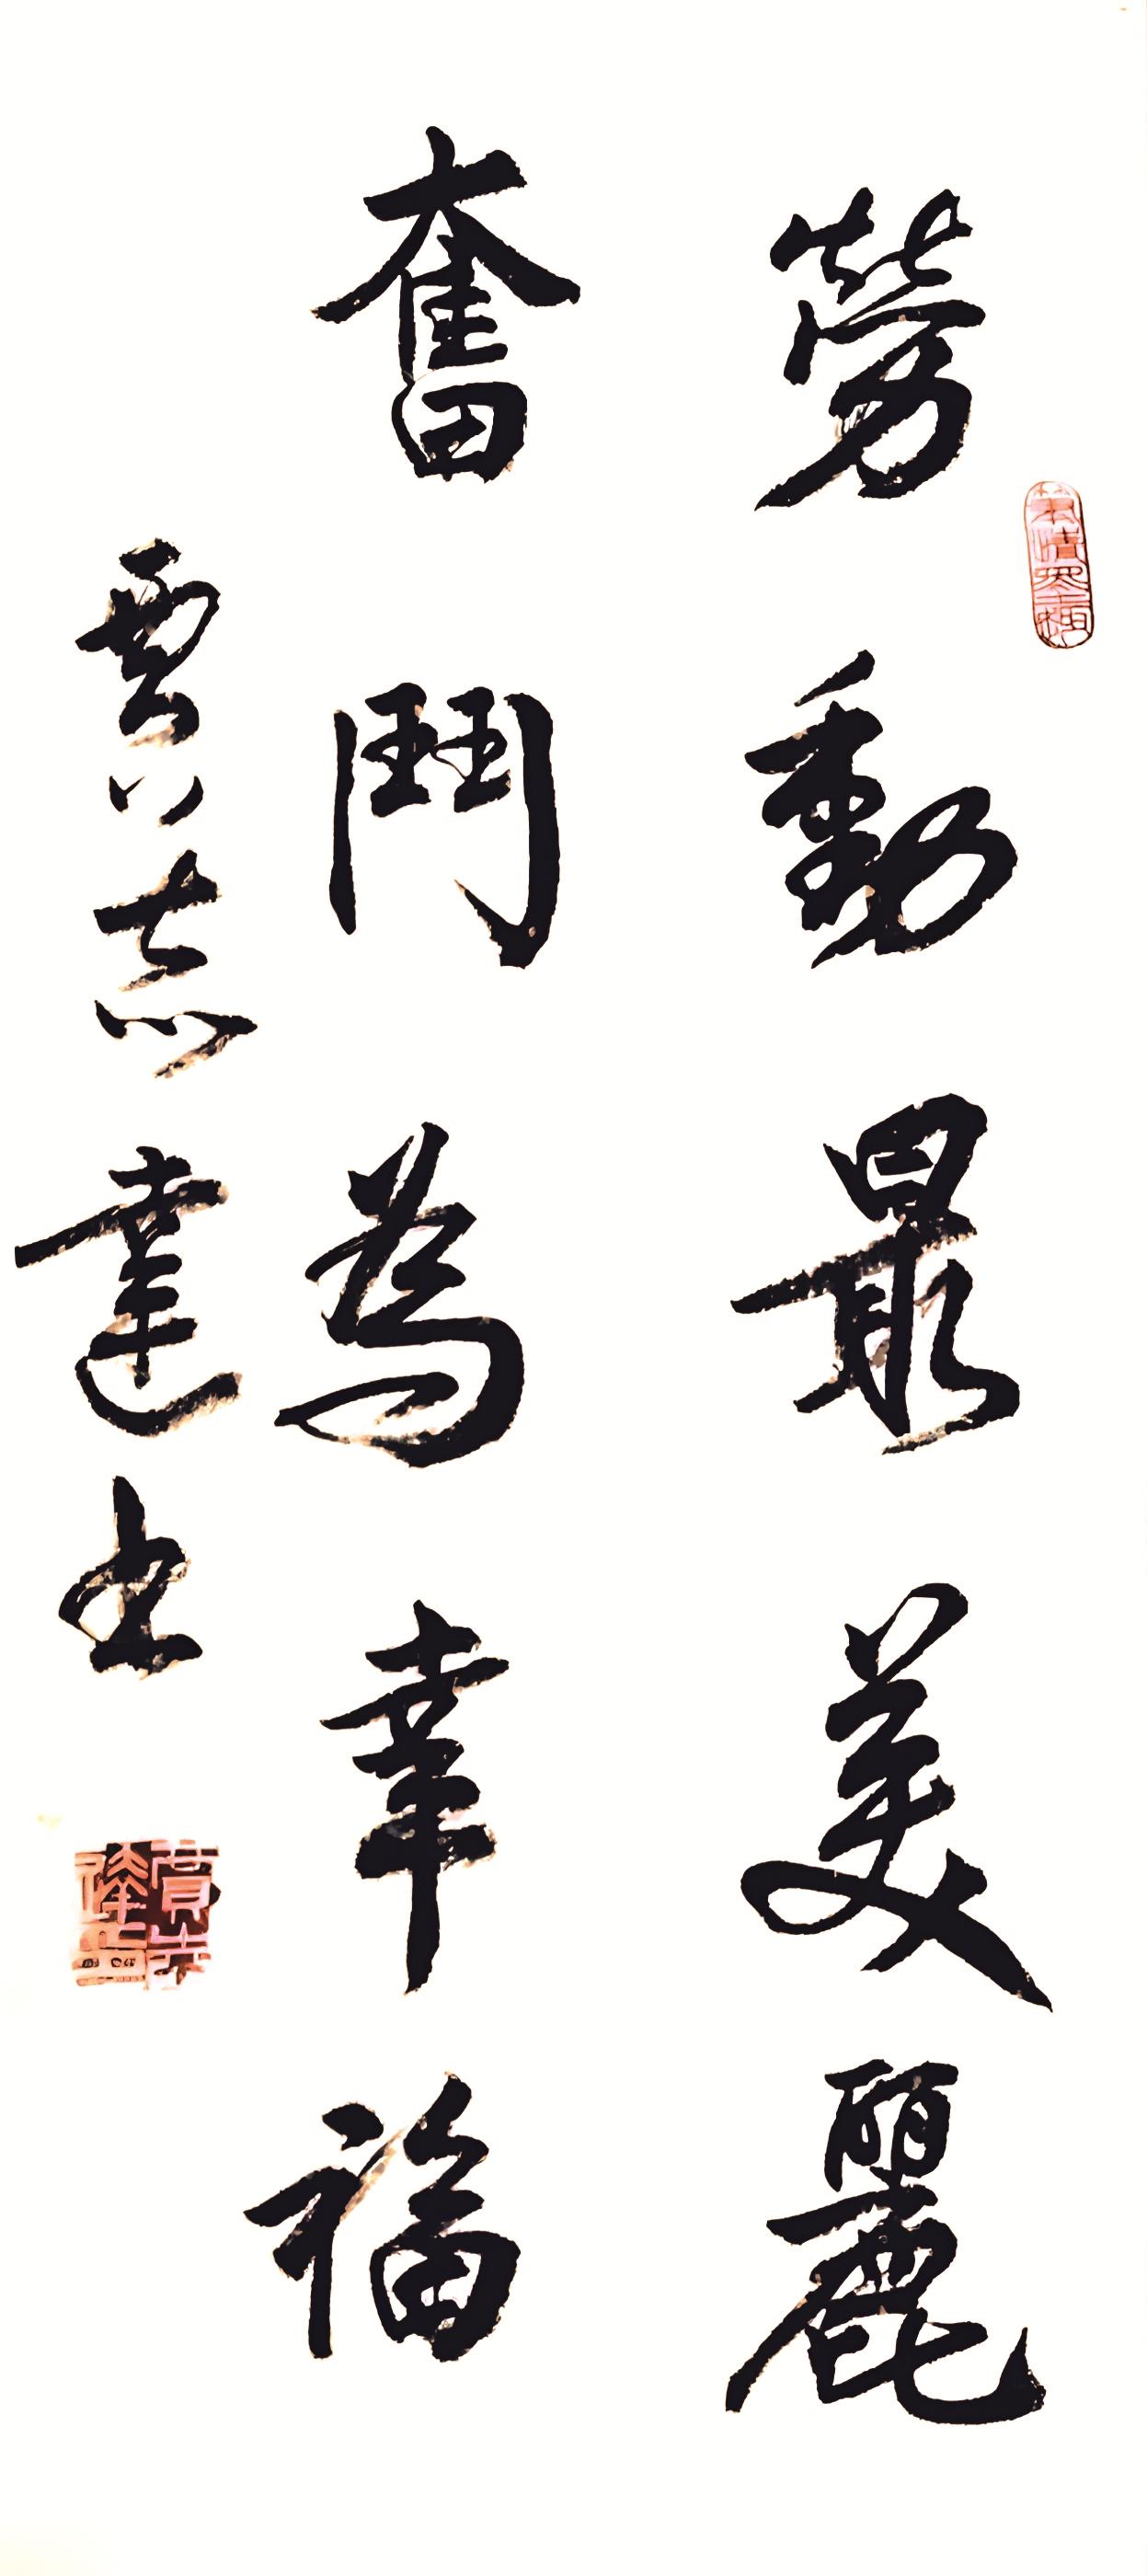 勞動最美麗
奮鬥為幸福
賈志達书